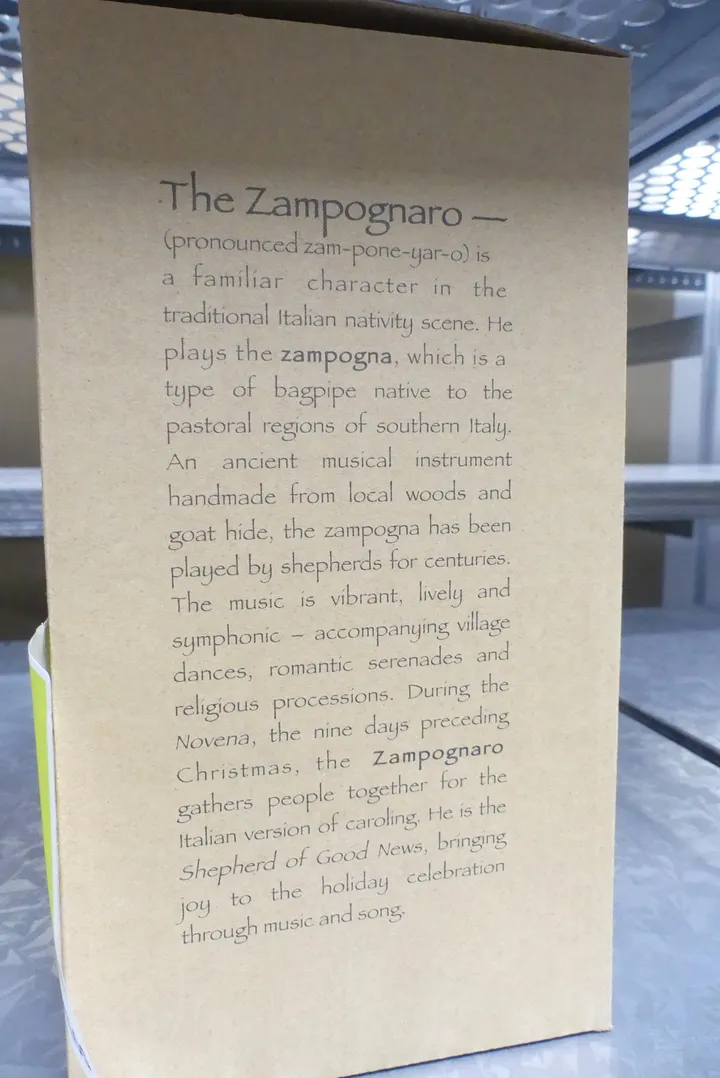 The Zampognaro —
(pronounced zam-pone-yar-o) is
a familiar character in the
traditional Italian nativity scene. He
plays the zampogna, which is a
type of bagpipe native to the
pastoral regions of southern Italy.
An ancient musical instrument
handmade from local woods and
goat hide, the zampogna has been
played by shepherds for centuries.
The music is vibrant, lively and
symphonic – accompanying village
dances, romantic serenades and
religious processions. During the
Novena, the nine days preceding
Christmas, the Zampognaro
gathers people together for the
Italian version of caroling. He is the
Shepherd of Good News, bringing
joy to the holiday celebration
through music and song.